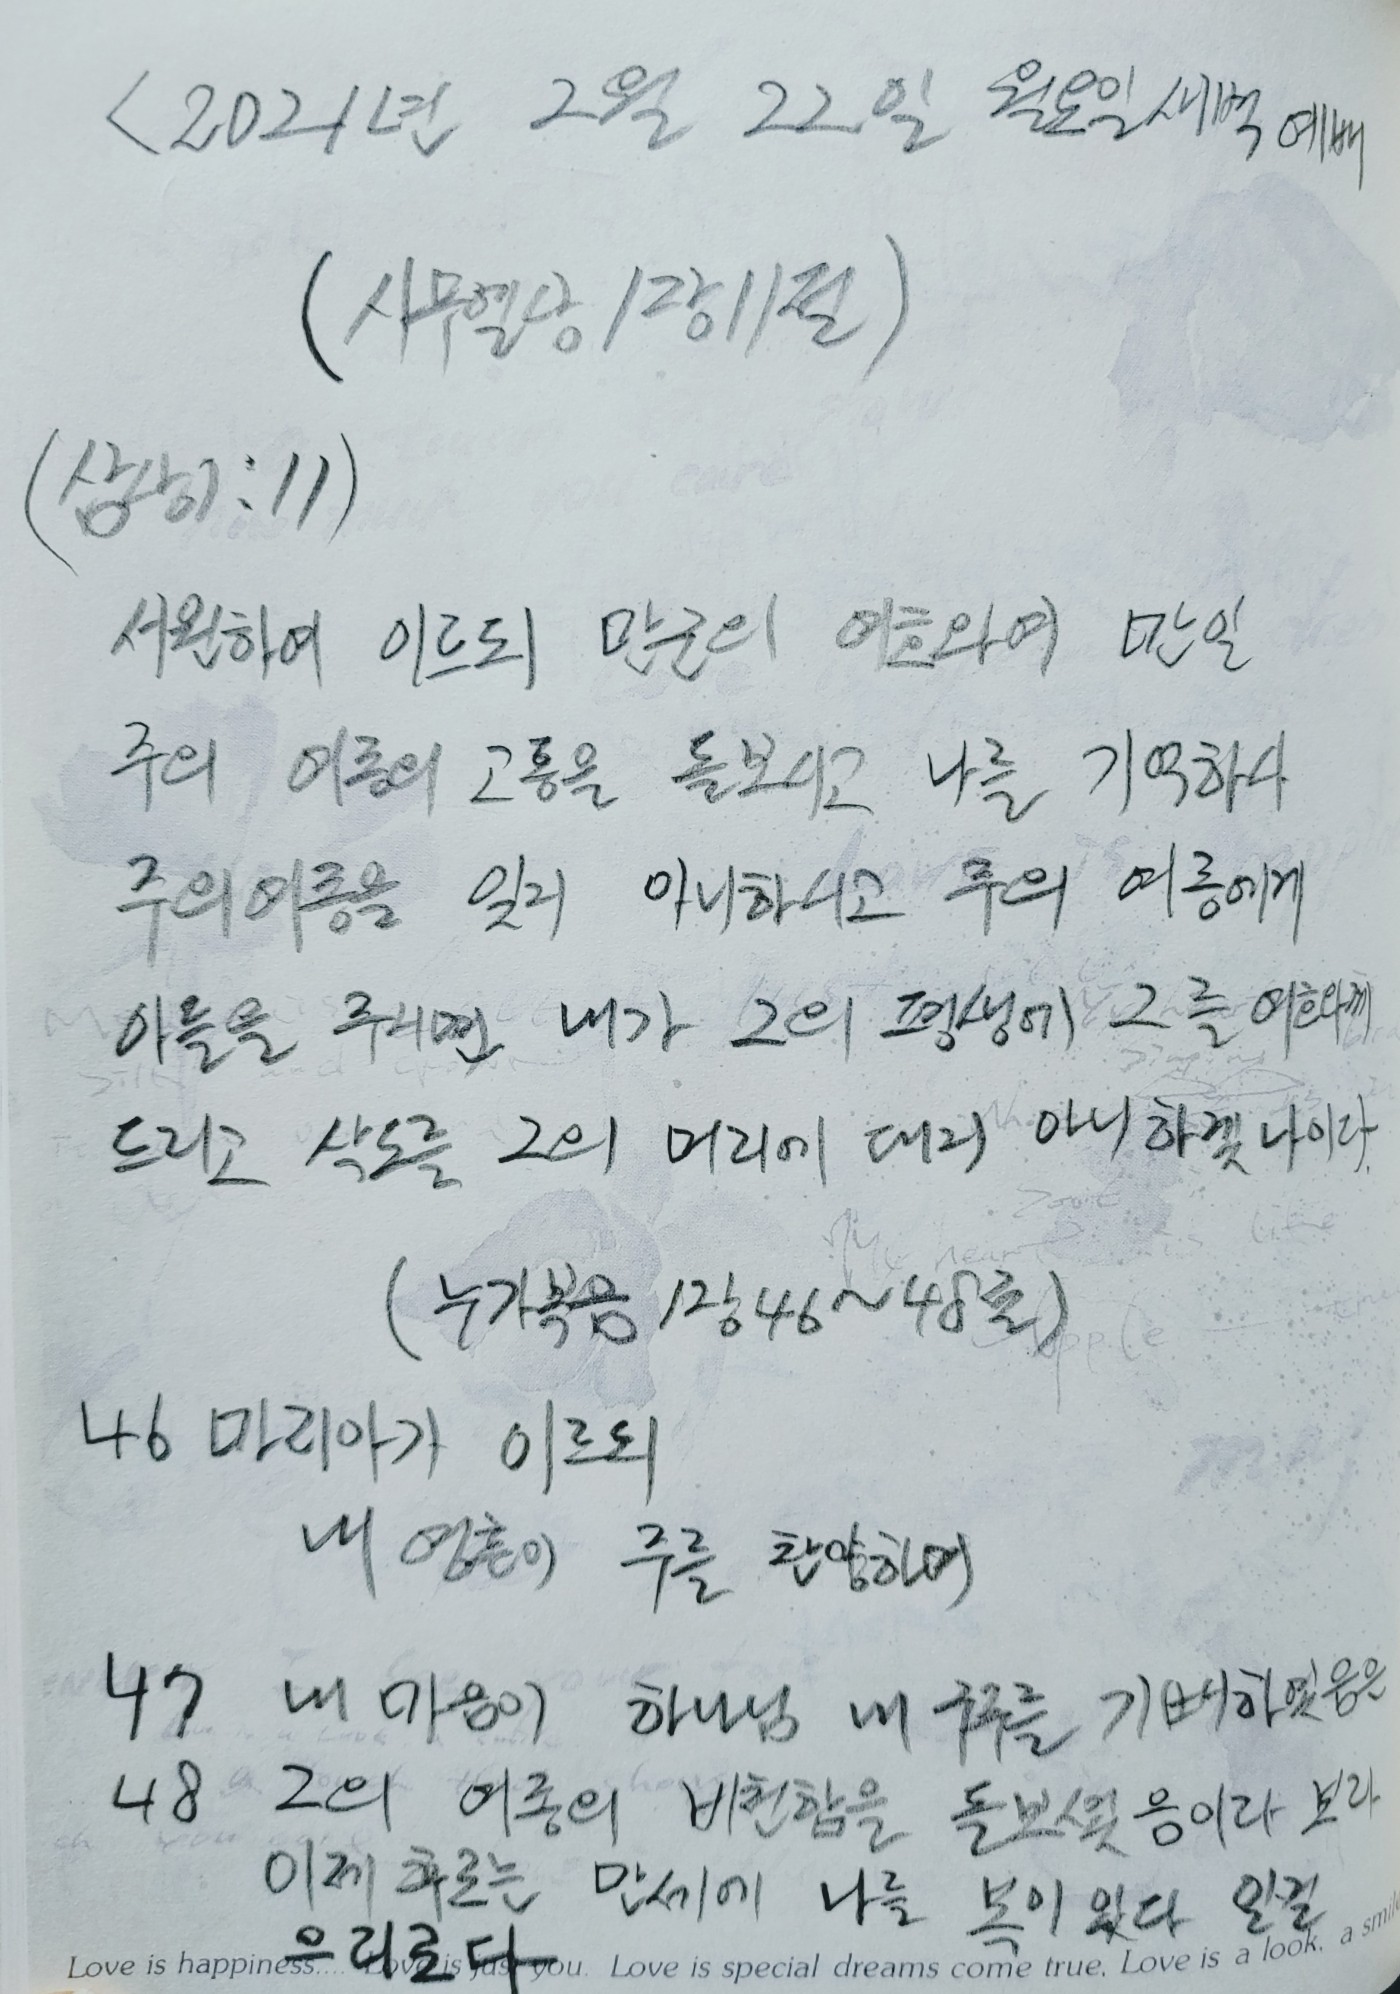 <2021년 2월 22일 월요일새벽예배
(사무엘상 1장11절)
(삼상1:11)
서원하여 이르되 만군의 여호와여 만일
주의 여종의 고통을 돌보시고 나를 기억하사
주의여종을 잊지 아니하시고 주의 여종에게
아들을 주시면 내가 그의 평생에 그를 여호와께
드리고 삭도를 그의 머리에 대지 아니하겠나이다.
(누가복음 1장46~48절)
46 마리아가 이르되
내 영혼이 주를 찬양하며
47 내 마음이 하나님 내 구주를 기뻐하였음은
48 그의 여종의 비천함을 돌보셨음이라 보라
이제 후로는 만세에 나를 복이 있다 일컬
으리로다
Love is happiness.... Love is just you. Love is special dreams come true. Love is a look, a smile